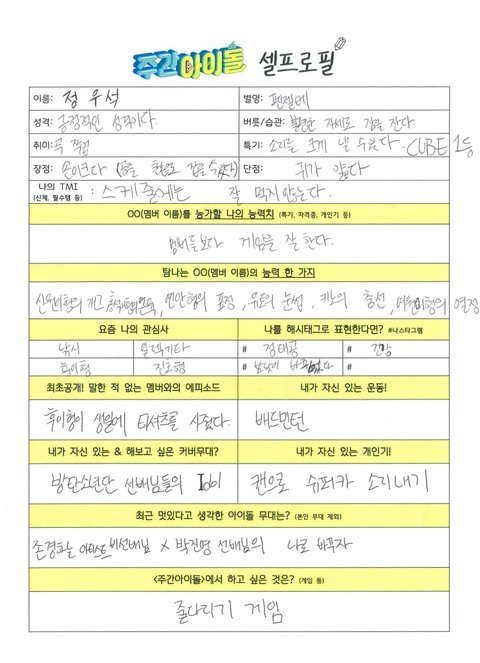 주간아이돌 셀프로필
이름: 정우석 별명: 펜젤베
성격: 긍정적인 성격이다. 버릇/습관: 불편한 자세로 잠을 잔다
취미: 특기: 소리를 크게 낼 수 있다. CUBE 1등
장점: 손이 크다 단점: 귀가 얇다
나의 TMI : 스케줄에는 잘 먹지 않는다.
(신체, 필수템 등)
OO(멤버 이름)를 능가할 나의 능력치 (특기, 자격증, 개인기 등)
멤버들보다 게임을 잘 한다.
탐나는 OO(멤버 이름)의 능력 한 가지
신원이형의 개그, 홍석이형의 운동, 옌안형의 표정, 유토의 눈썹, 키노의 춤선, 여원이형의 열정
요즘 나의 관심사 나를 해시태그로 표현한다면? #나스타그램
낚시 일렉기타 # 정태공 # 건강
후이형 진호형 # #
최초공개! 말한 적 없는 멤버와의 에피소드 내가 자신 있는 운동!
후이형이 생일에 티셔츠를 사줬다. 배드민턴
내가 자신 있는 & 해보고 싶은 커버무대? 내가 자신 있는 개인기!
방탄소년단 선배님들의 Idol 캔으로 슈퍼카 소리내기
최근 멋있다고 생각한 아이돌 무대는? (본인 무대 제외)
존경하는 아티스트 비선배님 X 박진영 선배님의 나로 바꾸자
<주간아이돌>에서 하고 싶은 것은? (게임 등)
줄다리기 게임